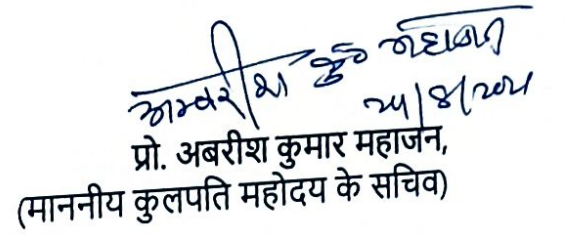 अम्बरीश कु० महाजन
प्रो. अबरीश कुमार महाजन,
(माननीय कुलपति महोदय के सचिव)